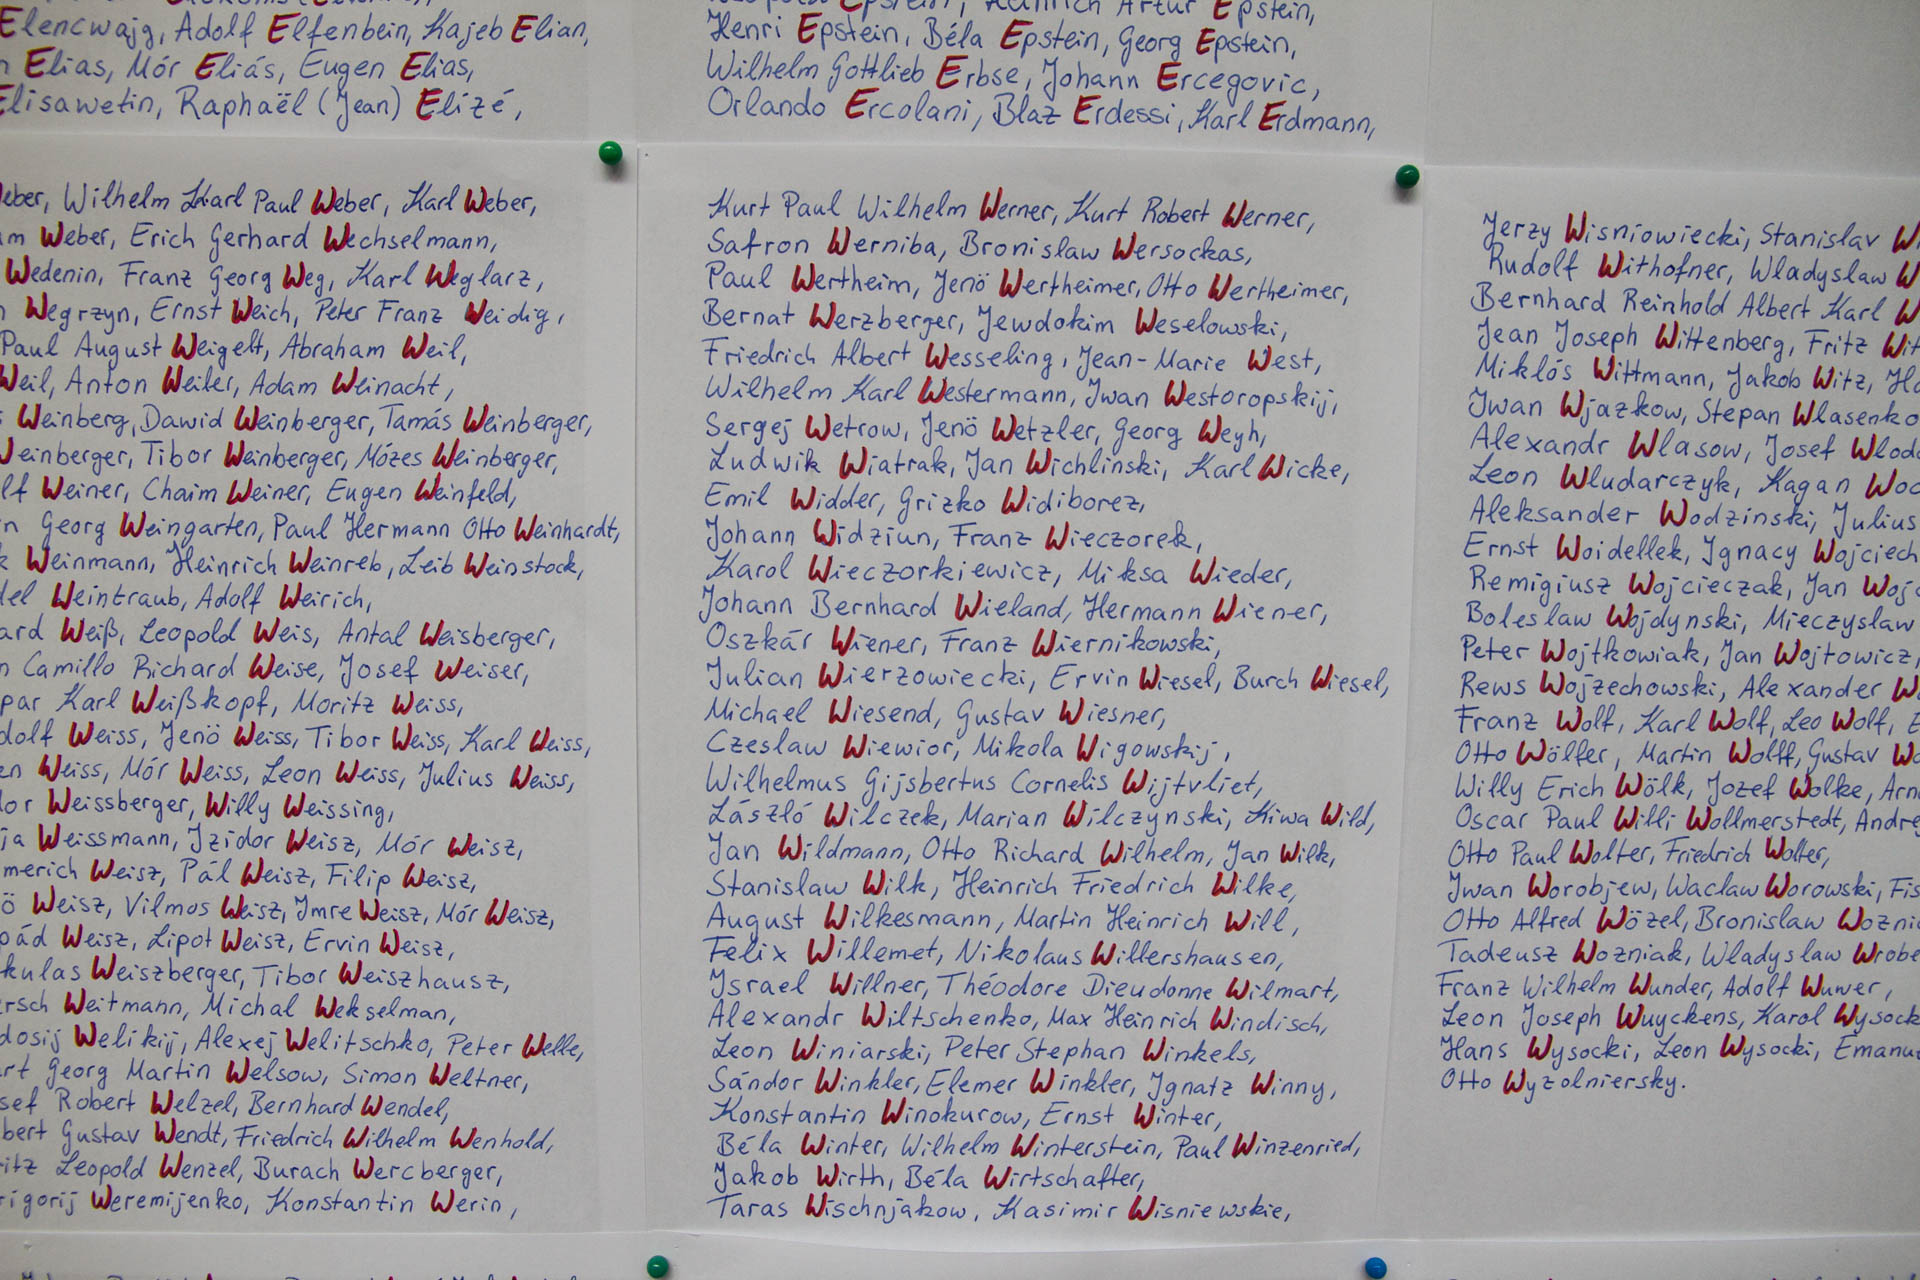 Elencwajg, Adolf Elfenbein, Kajeb Elian,
Elias, Mór Eliás, Eugen Elias,
Elisawetin, Raphaël (Jean) Elizé,
Henri Epstein, Béla Epstein, Georg Epstein,
Wilhelm Gottlieb Erbse, Johann Ercegovic,
Orlando Ercolani, Blaz Erdessi, Karl Erdmann,
Weber, Wilhelm Karl Paul Weber, Karl Weber,
Weber, Erich Gerhard Wechselmann,
Wedenin, Franz Georg Weg, Karl Weglarz,
Wegrzyn, Ernst Weich, Peter Franz Weidig,
Paul August Weigelt, Abraham Weil,
Weil, Anton Weiler, Adam Weinacht,
Weinberg, Dawid Weinberger, Tamás Weinberger,
Weinberger, Tibor Weinberger, Mózes Weinberger,
Weiner, Chaim Weiner, Eugen Weinfeld,
Georg Weingarten, Paul Hermann Otto Weinhardt,
Weinmann, Heinrich Weinreb, Leib Weinstock,
Weintraub, Adolf Weirich,
Weiß, Leopold Weis, Antal Weisberger,
Camillo Richard Weise, Josef Weiser,
Karl Weißkopf, Moritz Weiss,
Weiss, Jenö Weiss, Tibor Weiss, Karl Weiss,
Weiss, Mór Weiss, Leon Weiss, Julius Weiss,
Weissberger, Willy Weissing,
Weissmann, Izidor Weisz, Mór Weisz,
Weisz, Pál Weisz, Filip Weisz,
Weisz, Vilmos Weisz, Imre Weisz, Mór Weisz,
Weisz, Lipot Weisz, Ervin Weisz,
Weiszberger, Tibor Weiszhausz,
Weitmann, Michal Wekselman,
Welikij, Alexej Welitschko, Peter Welle,
Georg Martin Welsow, Simon Weltner,
Robert Welzel, Bernhard Wendel,
Gustav Wendt, Friedrich Wilhelm Wenhold,
Leopold Wenzel, Burach Wercberger,
Weremijenko, Konstantin Werin,
Kurt Paul Wilhelm Werner, Kurt Robert Werner,
Safron Werniba, Bronislaw Wersockas,
Paul Wertheim, Jenö Wertheimer, Otto Wertheimer,
Bernat Werzberger, Jewdokim Weselowski,
Friedrich Albert Wesseling, Jean-Marie West,
Wilhelm Karl Westermann, Iwan Westoropskij,
Sergej Wetrow, Jenö Wetzler, Georg Weyh,
Ludwik Wiatrak, Jan Wichlinski, Karl Wicke,
Emil Widder, Grizko Widiborez,
Johann Widziun, Franz Wieczorek,
Karol Wieczorkiewicz, Miksa Wieder,
Johann Bernhard Wieland, Hermann Wiener,
Oszkár Wiener, Franz Wiernikowski,
Julian Wierzowiecki, Ervin Wiesel, Burch Wiesel,
Michael Wiesend, Gustav Wiesner,
Czeslaw Wiewior, Mikola Wigowskij,
Wilhelmus Gijsbertus Cornelis Wijtvliet,
László Wilczek, Marian Wilczynski, Kiwa Wild,
Jan Wildmann, Otto Richard Wilhelm, Jan Wilk,
Stanislaw Wilk, Heinrich Friedrich Wilke,
August Wilkesmann, Martin Heinrich Will,
Felix Willemet, Nikolaus Willershausen,
Israel Willner, Théodore Dieudonne Wilmart,
Alexandr Wiltschenko, Max Heinrich Windisch,
Leon Winiarski, Peter Stephan Winkels,
Sándor Winkler, Elemer Winkler, Ignatz Winny,
Konstantin Winokurow, Ernst Winter,
Béla Winter, Wilhelm Winterstein, Paul Winzenried,
Jakob Wirth, Béla Wirtschafter,
Taras Wischnjakow, Kasimir Wisniewskie,
Jerzy Wisniowiecki, Stanislav
Rudolf Withofner, Wladyslaw
Bernhard Reinhold Albert Karl
Jean Joseph Wittenberg, Fritz
Miklós Wittmann, Jakob Witz,
Iwan Wjazkow, Stepan Wlasenko
Alexandr Wlasow, Josef
Leon Wludarczyk, Kagan
Aleksander Wodzinski, Julius
Ernst Woidellek, Ignacy
Remigiusz Wojcieczak, Jan
Boleslaw Wojdynski, Mieczyslaw
Peter Wojtkowiak, Jan Wojtowicz,
Rews Wojzechowski, Alexander
Franz Wolf, Karl Wolf, Leo Wolf,
Otto Wölfer, Martin Wolff, Gustav
Willy Erich Wölk, Jozef Wolke,
Oscar Paul Willi Wollmerstedt,
Otto Paul Wolter, Friedrich Wolter,
Iwan Worobjew, Waclaw Worowski,
Otto Alfred Wözel, Bronislaw
Tadeusz Wozniak, Wladyslaw
Franz Wilhelm Wunder, Adolf Wuwer,
Leon Joseph Wuyckens, Karol
Hans Wysocki, Leon Wysocki,
Otto Wyzolniersky.